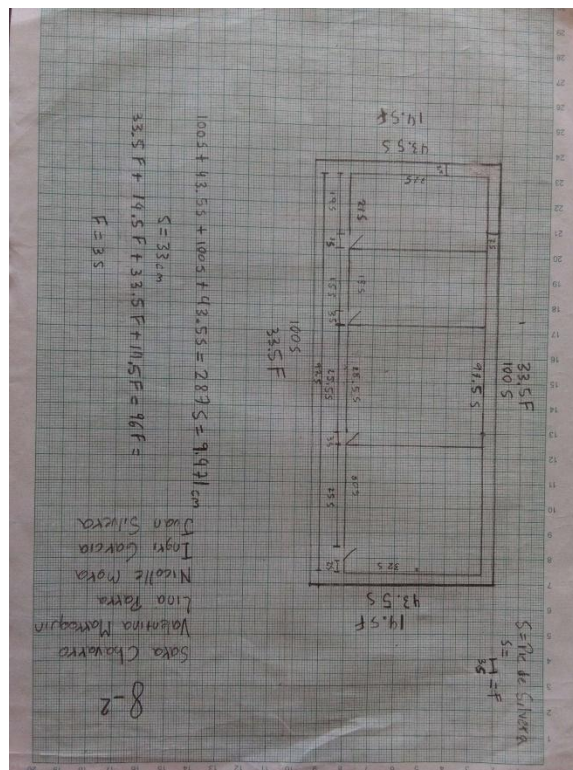 8-2
Sara Chavarro
Valentina Marroquin
Lina Parra
Nicolle Mora
Ingri Garcia
Juan Silvera
S = Pie de Silvera
S =
= F
3S
33.5F
100 S
14.5F
43.5S
14.5F
43.5 S
32 S
30S
25S
3S
28.5S
25.5S
92S
21S
19S
100S
33.5F
100S + 43.5S + 100S + 43.5S = 287S = 9.471 cm
S = 33 cm
33.5F + 14.5F + 33.5F + 14.5F = 96F =
F = 3S